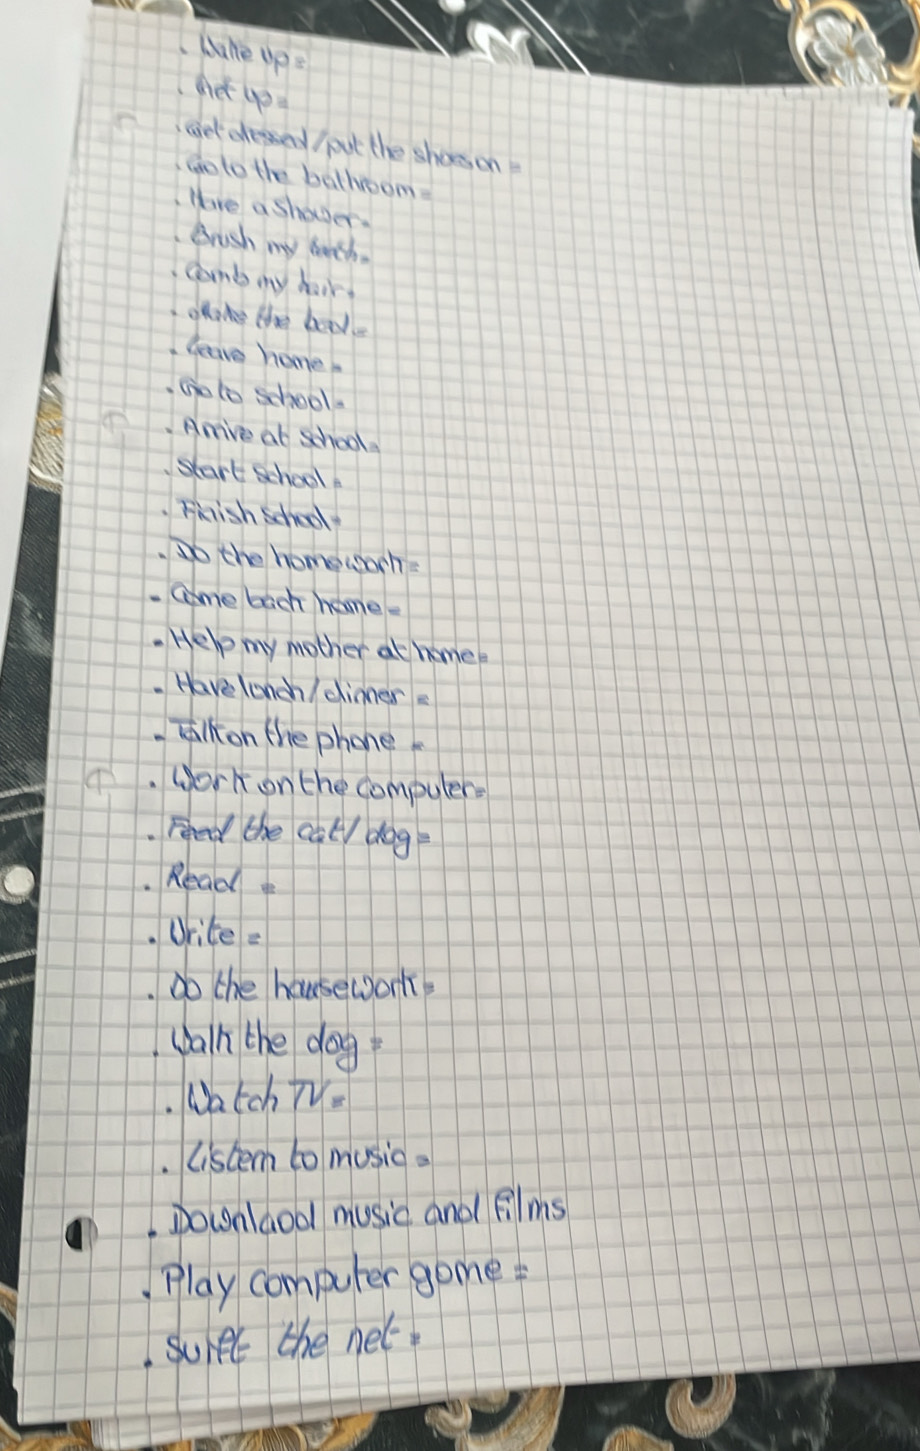 . Wake up =
. Get up =
. Get dressed/put the shoes on =
. Go to the bathroom =
. Have a Shower =
. Brush my teeth =
. Comb my hair =
. Make the bed =
. Leave home =
. Go to school =
. Arrive at school =
. Start School =
. Finish School =
. Do the homework =
. Come back home =
. Help my mother at home =
. Have lonch/dinner =
. Talk on the phone =
. Work on the computer =
. Feed the cat/dog =
. Read =
. Write =
. Do the housework =
. Walk the dog =
. Watch TV =
. Listem to music =
. Downlaod music and films
. Play computer gome =
. Surft the net =